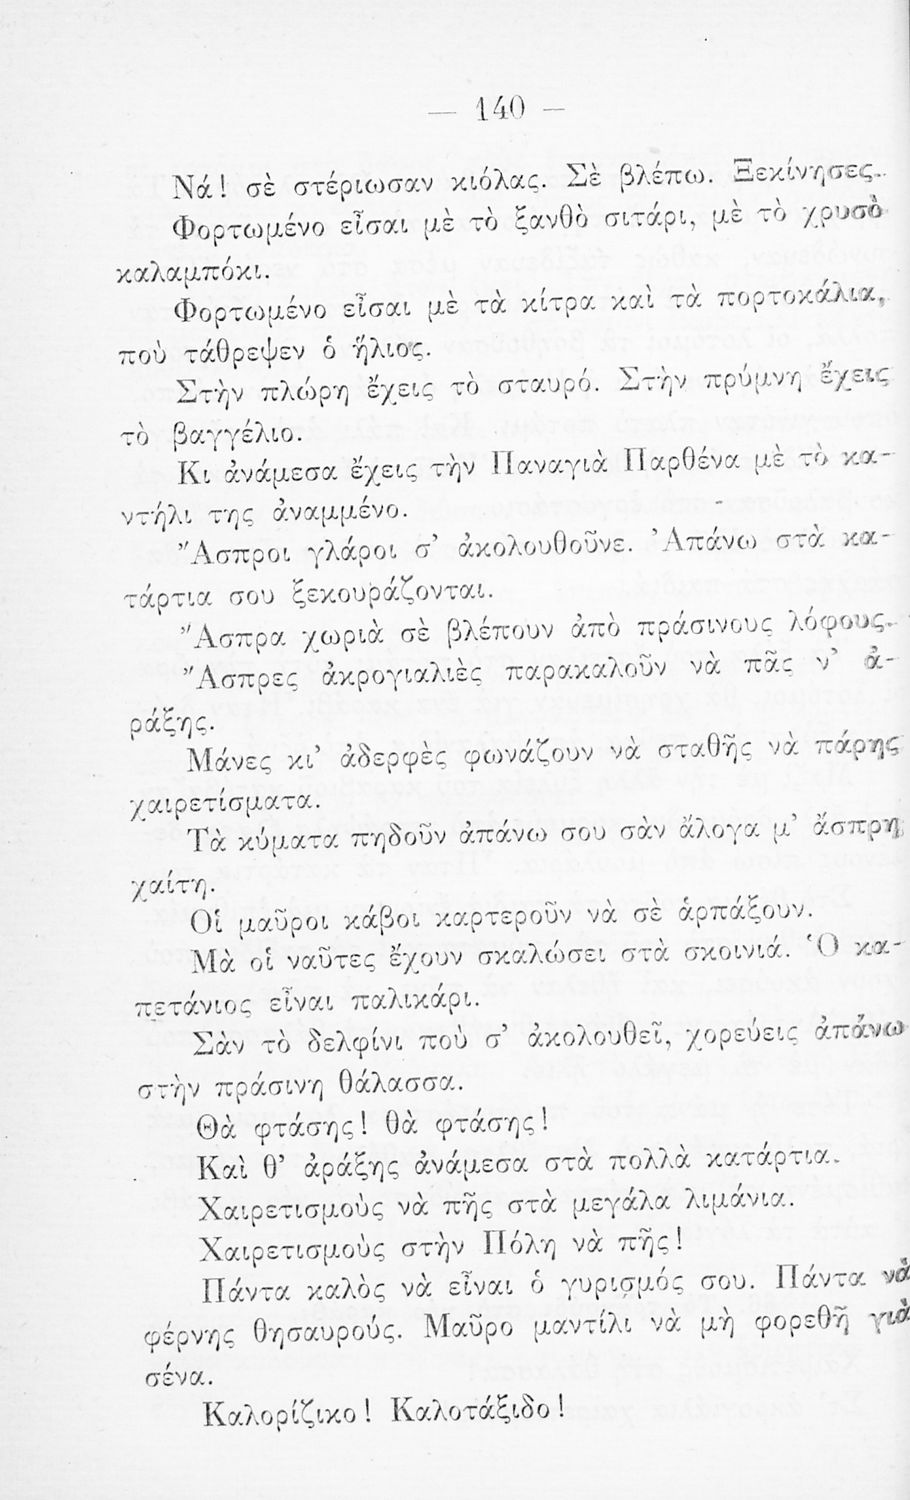 — 140 —
Νά! σὲ στέριωσαν κιόλας. Σὲ βλέπω. Ξεκίνησες.
Φορτωμένο εἶσαι μὲ τὸ ξανθὸ σιτάρι, μὲ τὸ χρυσὸ
καλαμπόκι.
Φορτωμένο εἶσαι μὲ τὰ κίτρα καὶ τὰ πορτοκάλια,
ποὺ τάθρεψεν ὁ ἥλιος.
Στὴν πλώρη ἔχεις τὸ σταυρό. Στὴν πρύμνη ἔχεις
τὸ βαγγέλιο.
Κι ἀνάμεσα ἔχεις τὴν Παναγιὰ Παρθένα μὲ τὸ κα-
ντήλι της ἀναμμένο.
Ἄσπροι γλάροι σ’ ἀκολουθοῦνε. Ἀπάνω στὰ κα-
τάρτια σου ξεκουράζονται.
Ἄσπρα χωριὰ σὲ βλέπουν ἀπὸ πράσινους λόφους.
Ἄσπρες ἀκρογιαλιὲς παρακαλοῦν νὰ πᾶς ν’ ἀ-
ράξης.
Μάνες κι’ ἀδερφὲς φωνάζουν νὰ σταθῆς νὰ πάρης
χαιρετίσματα.
Τὰ κύματα πηδοῦν ἀπάνω σου σὰν ἄλογα μ’ ἄσπρη
χαίτη.
Οἱ μαῦροι κάβοι καρτεροῦν νὰ σὲ ἁρπάξουν.
Μὰ οἱ ναῦτες ἔχουν σκαλώσει στὰ σκοινιά. Ὁ κα-
πετάνιος εἶναι παλικάρι.
Σὰν τὸ δελφίνι ποὺ σ’ ἀκολουθεῖ, χορεύεις ἀπάνω
στὴν πράσινη θάλασσα.
Θὰ φτάσης! θὰ φτάσης!
Καὶ θ’ ἀράξης ἀνάμεσα στὰ πολλὰ κατάρτια.
Χαιρετισμοὺς νὰ πῆς στὰ μεγάλα λιμάνια.
Χαιρετισμοὺς στὴν Πόλη νὰ πῆς!
Πάντα καλὸς νὰ εἶναι ὁ γυρισμός σου. Πάντα νὰ
φέρνης θησαυρούς. Μαῦρο μαντίλι νὰ μὴ φορεθῆ γιὰ
σένα.
Καλορίζικο! Καλοτάξιδο!